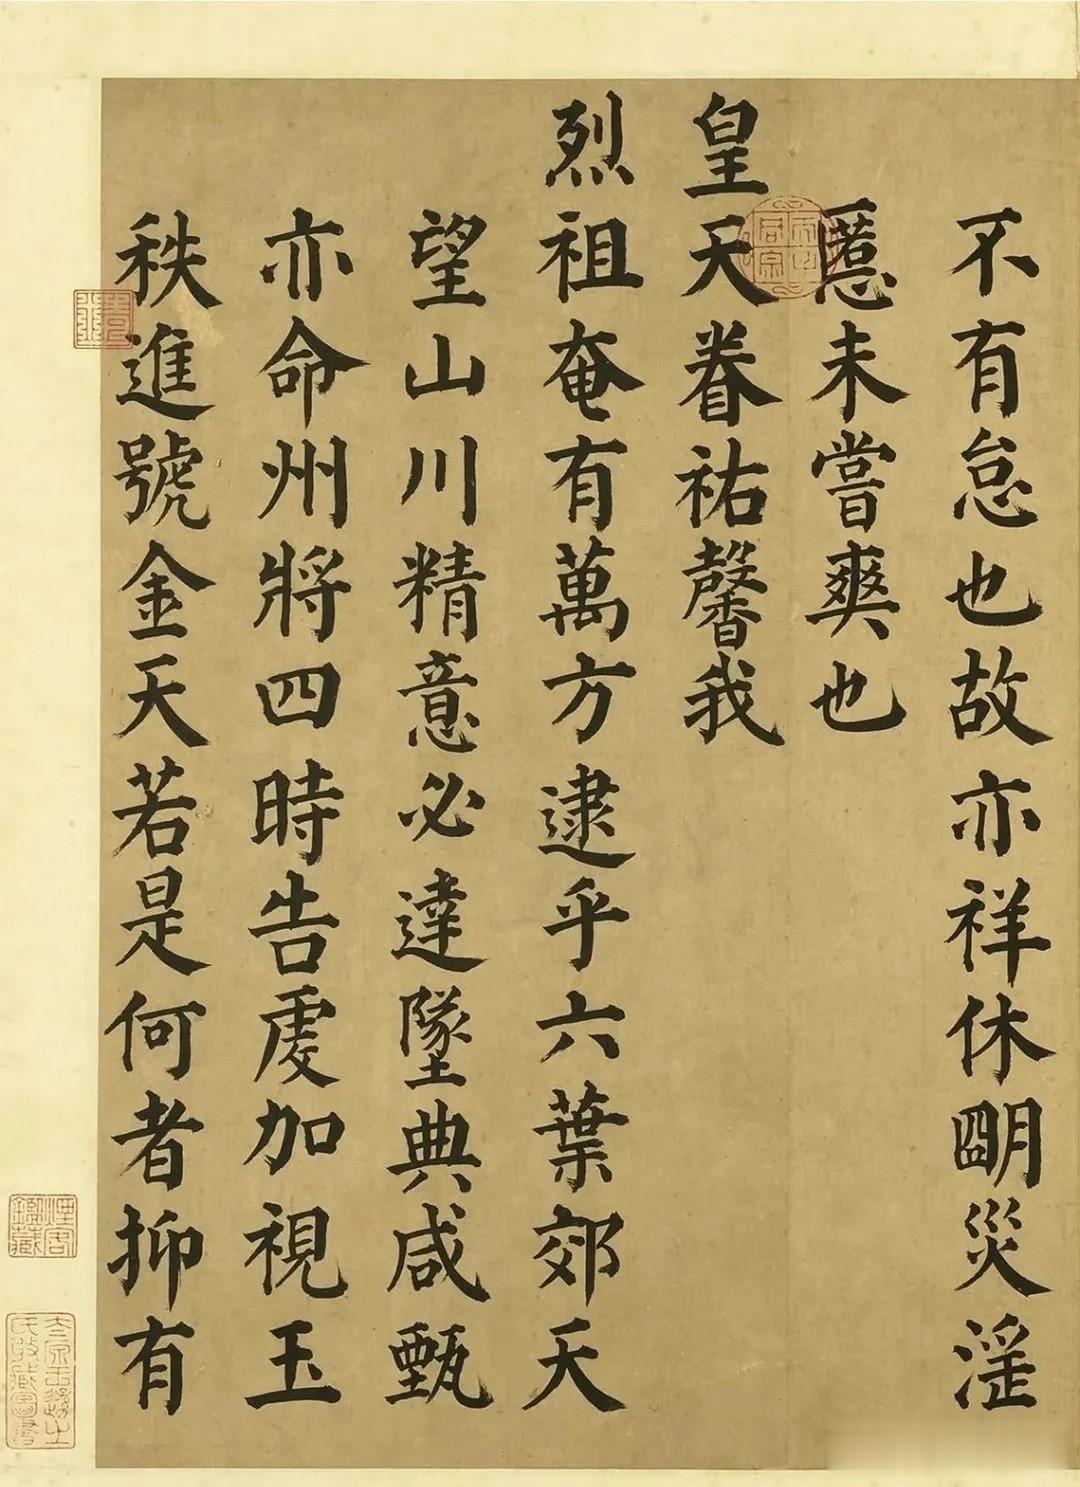 不有怠也故亦祥休朙災淫
慝未嘗爽也
皇天眷祐馨我
烈祖奄有萬方逮乎六葉郊天
望山川精意必達墜典咸甄
亦命州將四時告虔加視王
秩進號金天若是何者抑有
煙客鑑藏